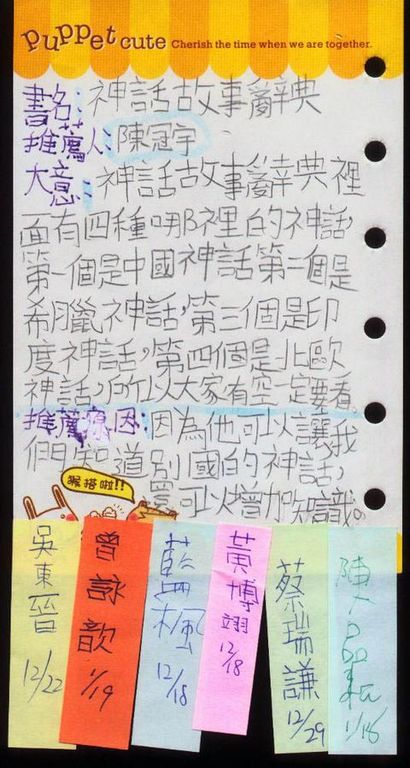 puppet cute Cherish the time when we are together.
書名:神話故事辭典
推薦人:陳冠宇
大意:神話故事辭典裡
面有四種哪裡的神話,
第一個是中國神話第二個是
希臘神話,第三個是印
度神話,第四個是北歐
神話,所以大家有空一定要看。
推薦原因:因為他可以讓我
們知道別國的神話,
還可以增加知識。
猴搭啦!!
吳東晉 12/22
曾詠歆 1/19
藍楓 12/18
黃博翊 12/18
蔡瑞謙 12/29
陳品 1/18